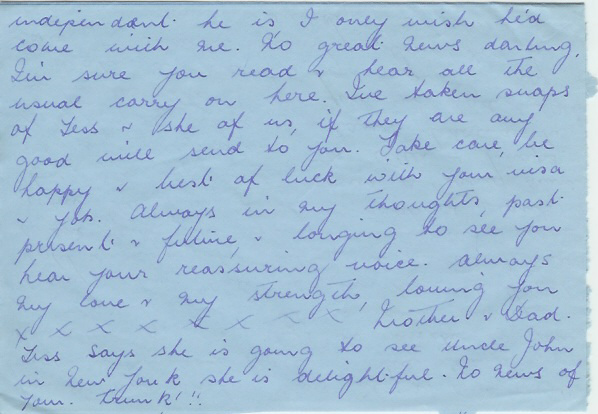 independant he is I only wish he'd
come with me. No great news darling,
I'm sure you read & hear all the
usual carry on here. I've taken snaps
of Tess & she of us, if they are any
good will send to you. Take care, be
happy & best of luck with your visa
& job. Always in my thoughts, past
present & future, & longing to see you
hear your reassuring voice. Always
my love & my strength, loving you
x x x x x x x x x Mother & Dad.
Tess says she is going to see Uncle John
in New York she is delightful. No news of
your trunk!!!